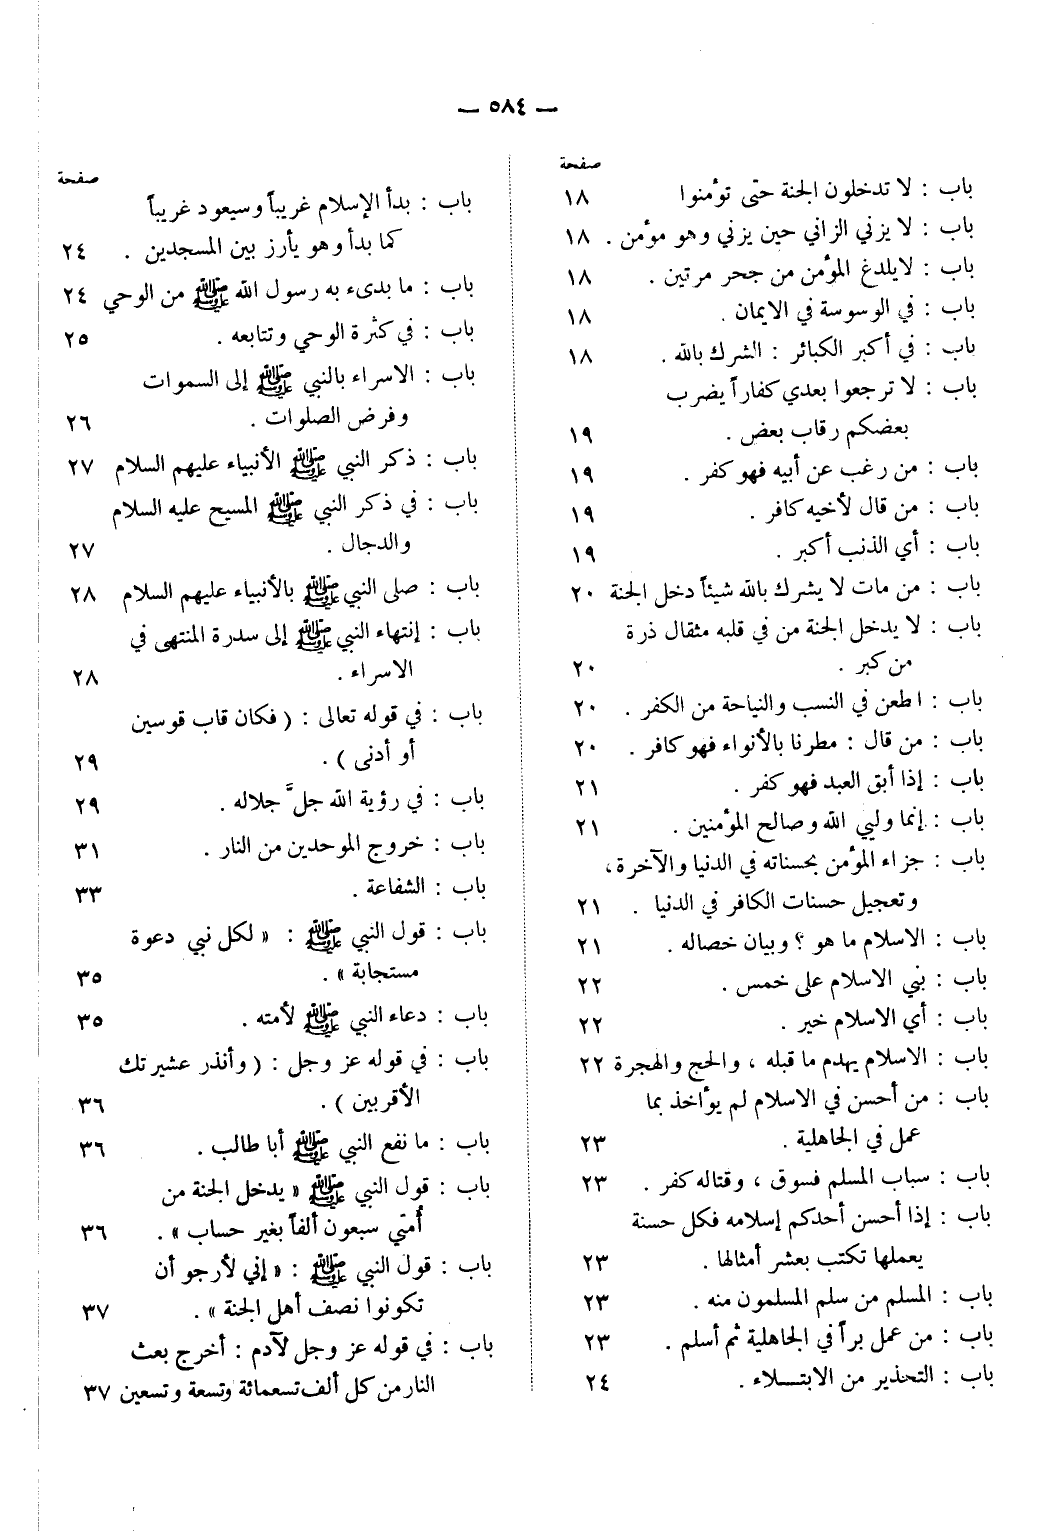 — ٥٨٤ —
صفحة
باب : لا تدخلون الجنة حتى تؤمنوا ١٨
باب : لا يزني الزاني حين يزني وهو مؤمن . ١٨
باب : لايلدغ المؤمن من جحر مرتين . ١٨
باب : في الوسوسة في الايمان . ١٨
باب : في أكبر الكبائر : الشرك بالله . ١٨
باب : لا ترجعوا بعدي كفاراً يضرب
بعضكم رقاب بعض . ١٩
باب : من رغب عن أبيه فهو كفر . ١٩
باب : من قال لأخيه كافر . ١٩
باب : أي الذنب أكبر . ١٩
باب : من مات لا يشرك بالله شيئاً دخل الجنة ٢٠
باب : لا يدخل الجنة من في قلبه مثقال ذرة
من كبر . ٢٠
باب : اطعن في النسب والنياحة من الكفر . ٢٠
باب : من قال : مطرنا بالأنواء فهو كافر . ٢٠
باب : إذا أبق العبد فهو كفر . ٢١
باب : إنما وليي الله وصالح المؤمنين . ٢١
باب : جزاء المؤمن بحسناته في الدنيا والآخرة ،
وتعجيل حسنات الكافر في الدنيا . ٢١
باب : الاسلام ما هو ؟ وبيان خصاله . ٢١
باب : بني الاسلام على خمس . ٢٢
باب : أي الاسلام خير . ٢٢
باب : الاسلام يهدم ما قبله ، والحج والهجرة ٢٢
باب : من أحسن في الاسلام لم يؤاخذ بما
عمل في الجاهلية . ٢٣
باب : سباب المسلم فسوق ، وقتاله كفر . ٢٣
باب : إذا أحسن أحدكم إسلامه فكل حسنة
يعملها تكتب بعشر أمثالها . ٢٣
باب : المسلم من سلم المسلمون منه . ٢٣
باب : من عمل براً في الجاهلية ثم أسلم . ٢٣
باب : التحذير من الابتـــلاء . ٢٤
صفحة
باب : بدأ الإسلام غريباً وسيعود غريباً
كما بدأ وهو يأرز بين المسجدين . ٢٤
باب : ما بدىء به رسول الله ﷺ من الوحي ٢٤
باب : في كثرة الوحي وتتابعه . ٢٥
باب : الاسراء بالنبي ﷺ إلى السموات
وفرض الصلوات . ٢٦
باب : ذكر النبي ﷺ الأنبياء عليهم السلام ٢٧
باب : في ذكر النبي ﷺ المسيح عليه السلام
والدجال . ٢٧
باب : صلى النبي ﷺ بالأنبياء عليهم السلام ٢٨
باب : إنتهاء النبي ﷺ إلى سدرة المنتهى في
الاسراء . ٢٨
باب : في قوله تعالى : ( فكان قاب قوسين
أو أدنى ) . ٢٩
باب : في رؤية الله جلَّ جلاله . ٢٩
باب : خروج الموحدين من النار . ٣١
باب : الشفاعة . ٣٣
باب : قول النبي ﷺ : « لكل نبي دعوة
مستجابة » . ٣٥
باب : دعاء النبي ﷺ لأمته . ٣٥
باب : في قوله عز وجل : ( وأنذر عشيرتك
الأقربين ) . ٣٦
باب : ما نفع النبي ﷺ أبا طالب . ٣٦
باب : قول النبي ﷺ « يدخل الجنة من
أُمتي سبعون ألفاً بغير حساب » . ٣٦
باب : قول النبي ﷺ : « إني لأرجو أن
تكونوا نصف أهل الجنة » . ٣٧
باب : في قوله عز وجل لآدم : أخرج بعث
النار من كل ألف تسعمائة وتسعة وتسعين ٣٧